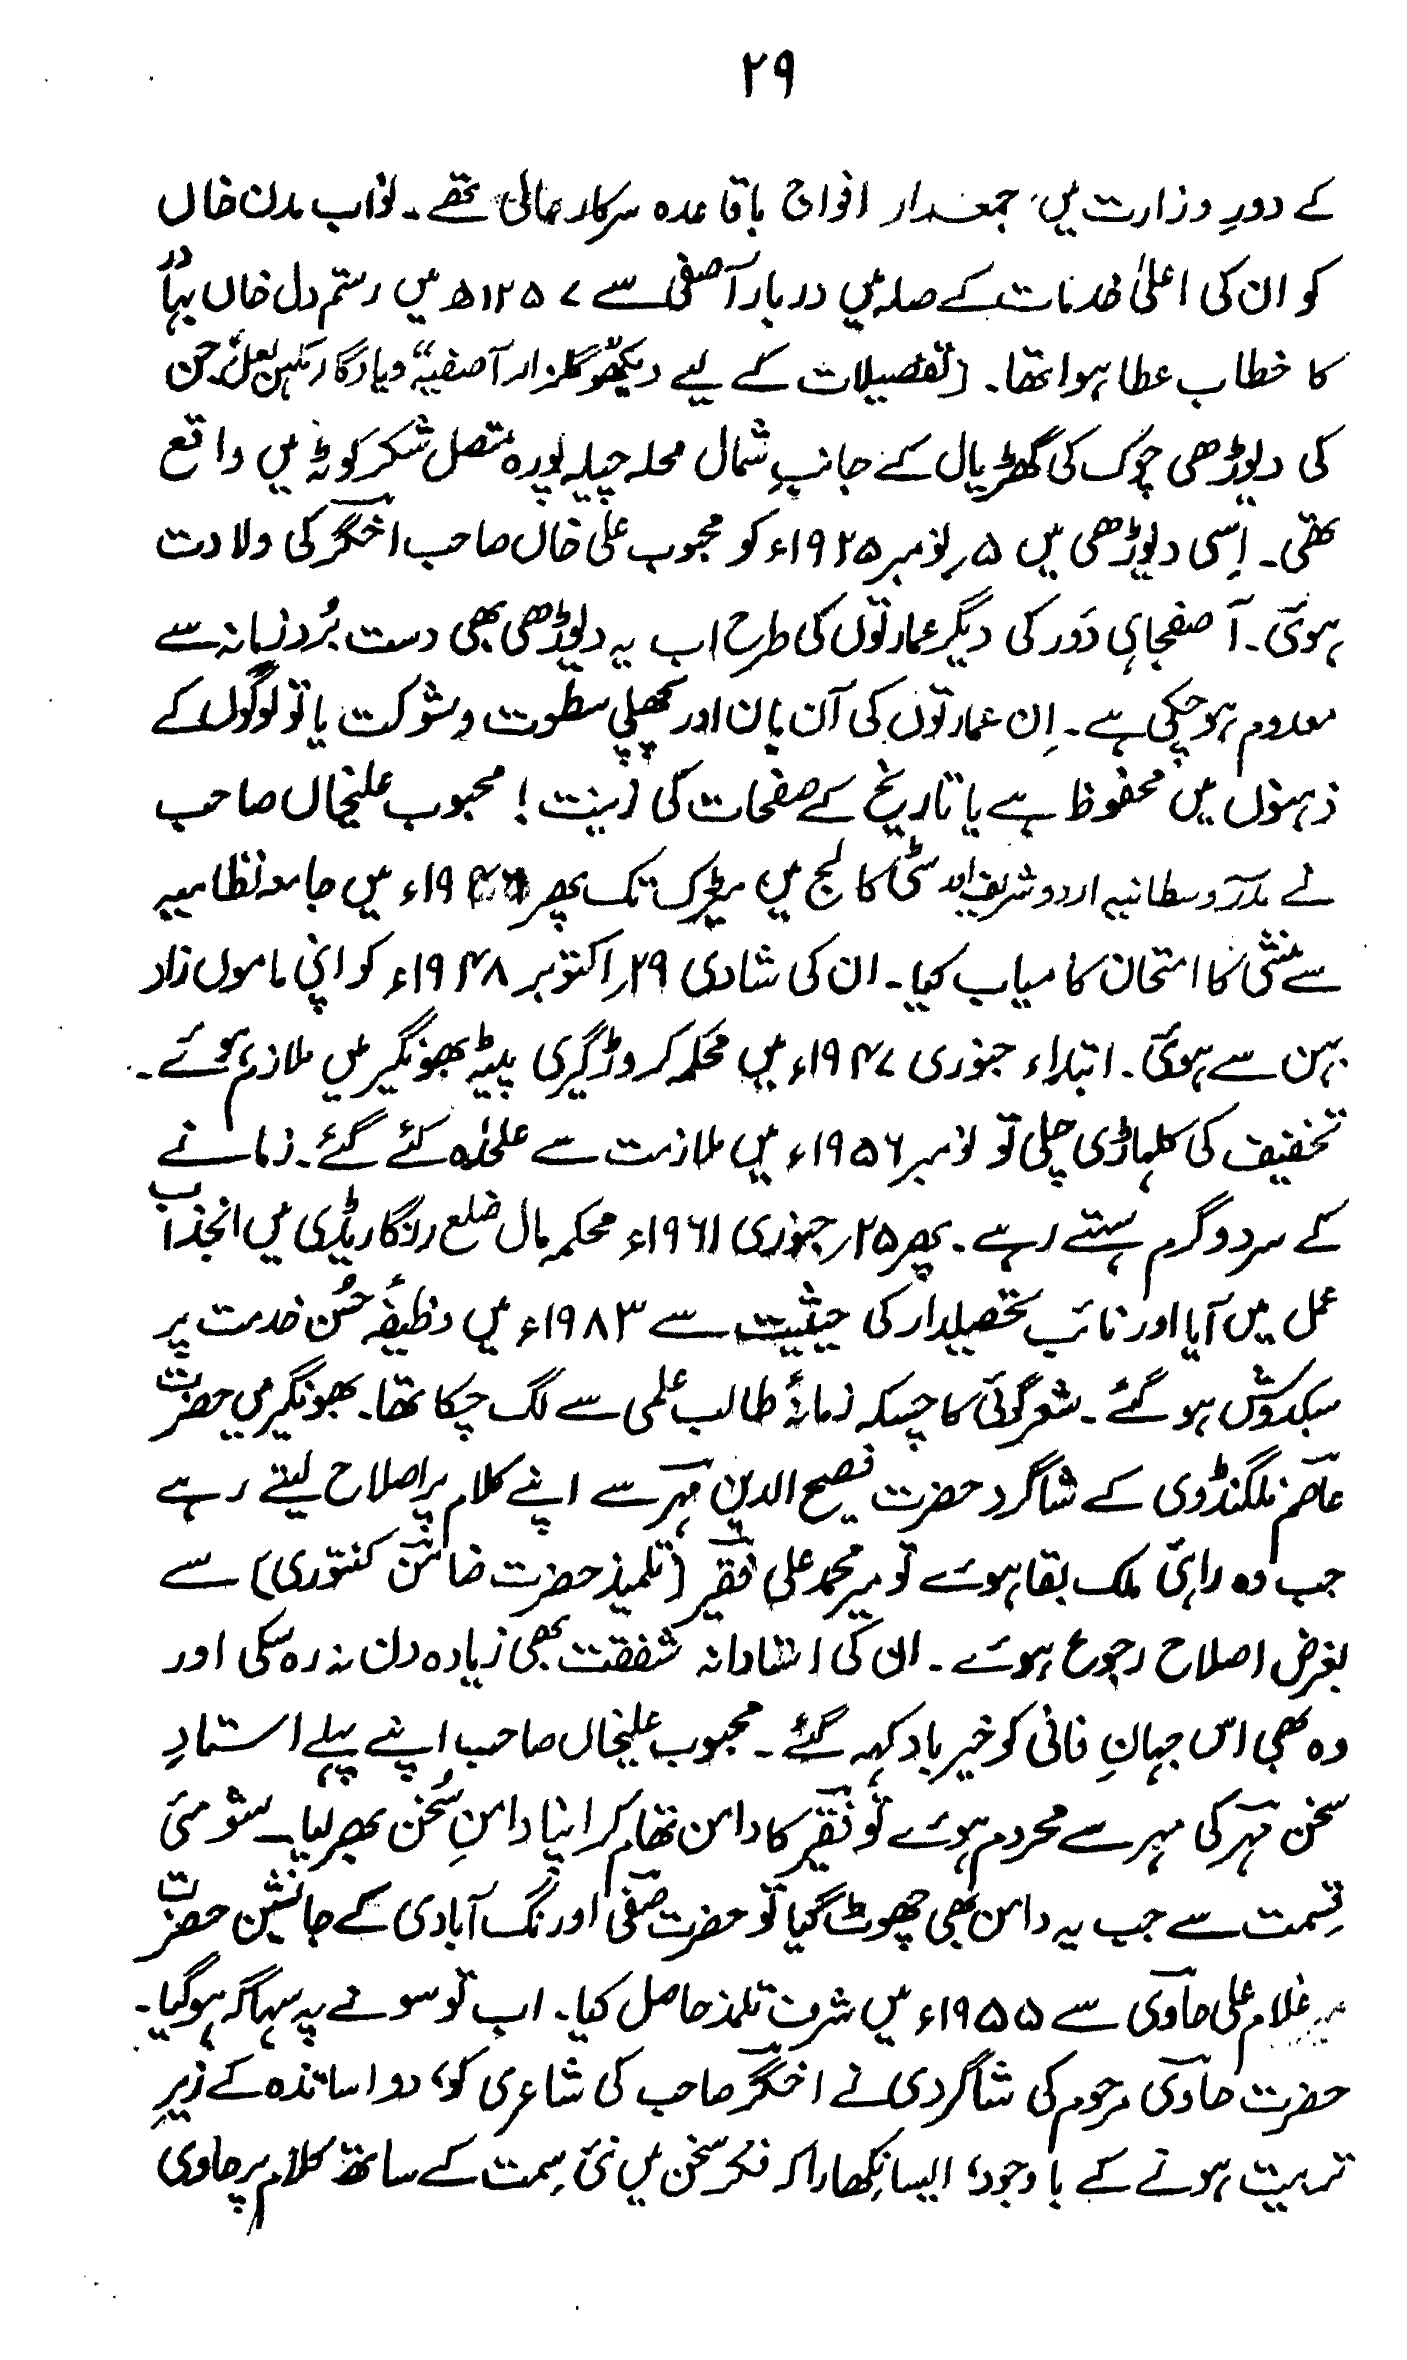 ۲۹
کے دورِ وزارت میں، جمعدار افواج باقاعدہ سرکار عالی تھے۔ نواب مدن خاں
کو ان کی اعلیٰ خدمات کے صلہ میں دربار آصفی سے ۱۲۵۷ھ میں رستم دل خاں بہادر
کا خطاب عطا ہوا تھا۔ (تفصیلات کے لیے دیکھو "گلزار آصفیہ" و یادگار مکھن لعل) جن
کی دیوڑھی چوک کی گھڑیال کے جانبِ شمال محلہ چیلہ پورہ متصل شکر کوٹہ میں واقع
تھی۔ اِسی دیوڑھی میں ۵؍نومبر ۱۹۲۵ء کو محبوب علی خاں صاحب اخگر کی ولادت
ہوئی۔ آصفجاہی دَور کی دیگر عمارتوں کی طرح اب یہ دیوڑھی بھی دست بُرد زمانہ سے
معدوم ہو چکی ہے۔ اِن عمارتوں کی آن بان اور پچھلی سطوت و شوکت یا تو لوگوں کے
ذہنوں میں محفوظ ہے یا تاریخ کے صفحات کی زینت! محبوب علیخاں صاحب
نے مدرسہ وسطانیہ اردو شریف اور سٹی کالج میں میٹرک تک پھر ۱۹۴۶ء میں جامعہ نظامیہ
سے منشی کا امتحان کامیاب کیا۔ ان کی شادی ۲۹؍اکتوبر ۱۹۴۸ء کو اپنی ماموں زاد
بہن سے ہوئی۔ ابتداء جنوری ۱۹۴۷ء میں محکمہ کروڑگیری پیٹہ بھونگیر میں ملازم ہوئے۔
تخفیف کی کلہاڑی چلی تو نومبر ۱۹۵۶ء میں ملازمت سے علیحدہ کئے گئے۔ زمانے
کے سرد و گرم سہتے رہے۔ پھر ۲۵؍جنوری ۱۹۶۱ء محکمہ مال ضلع رنگاریڈی میں انجذاب
عمل میں آیا اور نائب تحصیلدار کی حیثیت سے ۱۹۸۳ء میں وظیفۂ حُسن خدمت پر
سبکدوش ہو گئے۔ شعر گوئی کا چسکہ زمانۂ طالب علمی سے لگ چکا تھا۔ بھونگیر میں حضرت
عاصم نلگنڈوی کے شاگرد حضرت فصیح الدین مہر سے اپنے کلام پر اصلاح لیتے رہے
جب وہ راہیٔ ملک بقا ہوئے تو میر محمد علی فقیر (تلمیذ حضرت ضامن کنتوری) سے
بغرض اصلاح رجوع ہوئے۔ ان کی استادانہ شفقت بھی زیادہ دن نہ رہ سکی اور
وہ بھی اس جہانِ فانی کو خیر باد کہہ گئے۔ محبوب علیخاں صاحب اپنے پہلے استادِ
سخن مہر کی مہر سے محروم ہوئے تو فقیر کا دامن تھام کر اپنا دامنِ سُخن بھر لیا۔ شومئی
قِسمت سے جب یہ دامن بھی چھوٹ گیا تو حضرت صفی اورنگ آبادی کے جانشین حضرت
میر غلام علی حاوی سے ۱۹۵۵ء میں شرف تلمذ حاصل کیا۔ اب تو سونے پہ سہاگہ ہو گیا۔
حضرت حاوی مرحوم کی شاگردی نے اخگر صاحب کی شاعری کو، دو اساتذہ کے زیرِ
تربیت ہونے کے باوجود، ایسا نِکھارا کہ فکر سخن میں نئی سِمت کے ساتھ کلام پر حاوی